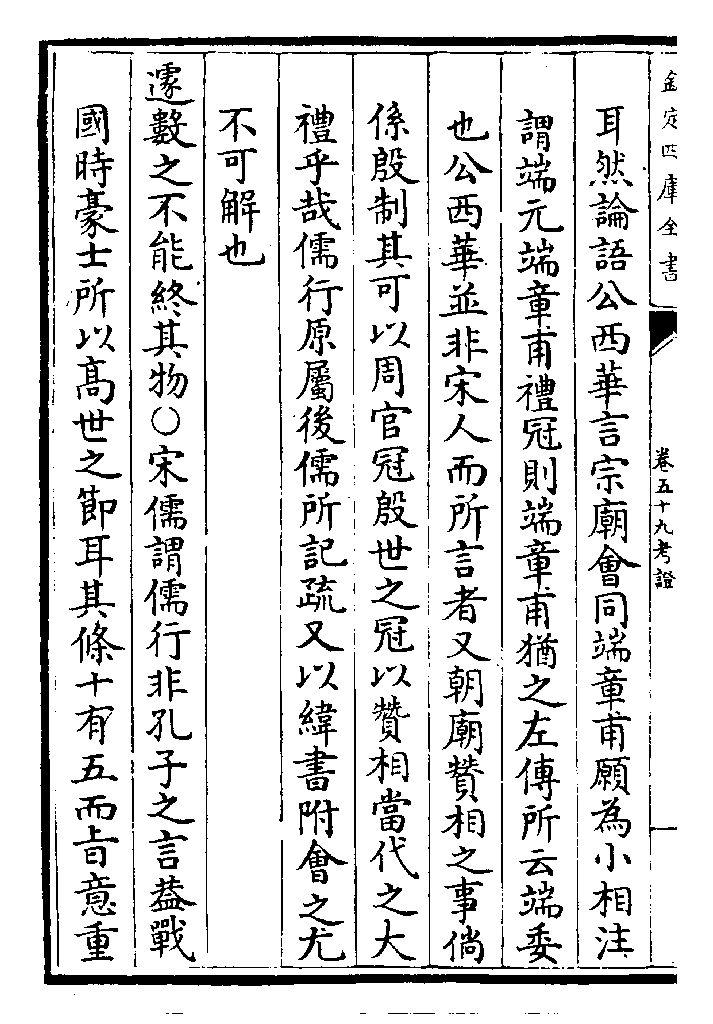 欽定四庫全書
卷五十九考證
耳然論語公西華言宗廟會同端章甫願為小相注
謂端元端章甫禮冠則端章甫猶之左傳所云端委
也公西華並非宋人而所言者又朝廟贊相之事倘
係殷制其可以周官冠殷世之冠以贊相當代之大
禮乎哉儒行原屬後儒所記疏又以緯書附會之尤
不可解也
遽數之不能終其物〇宋儒謂儒行非孔子之言葢戰
國時豪士所以髙世之節耳其條十有五而旨意重